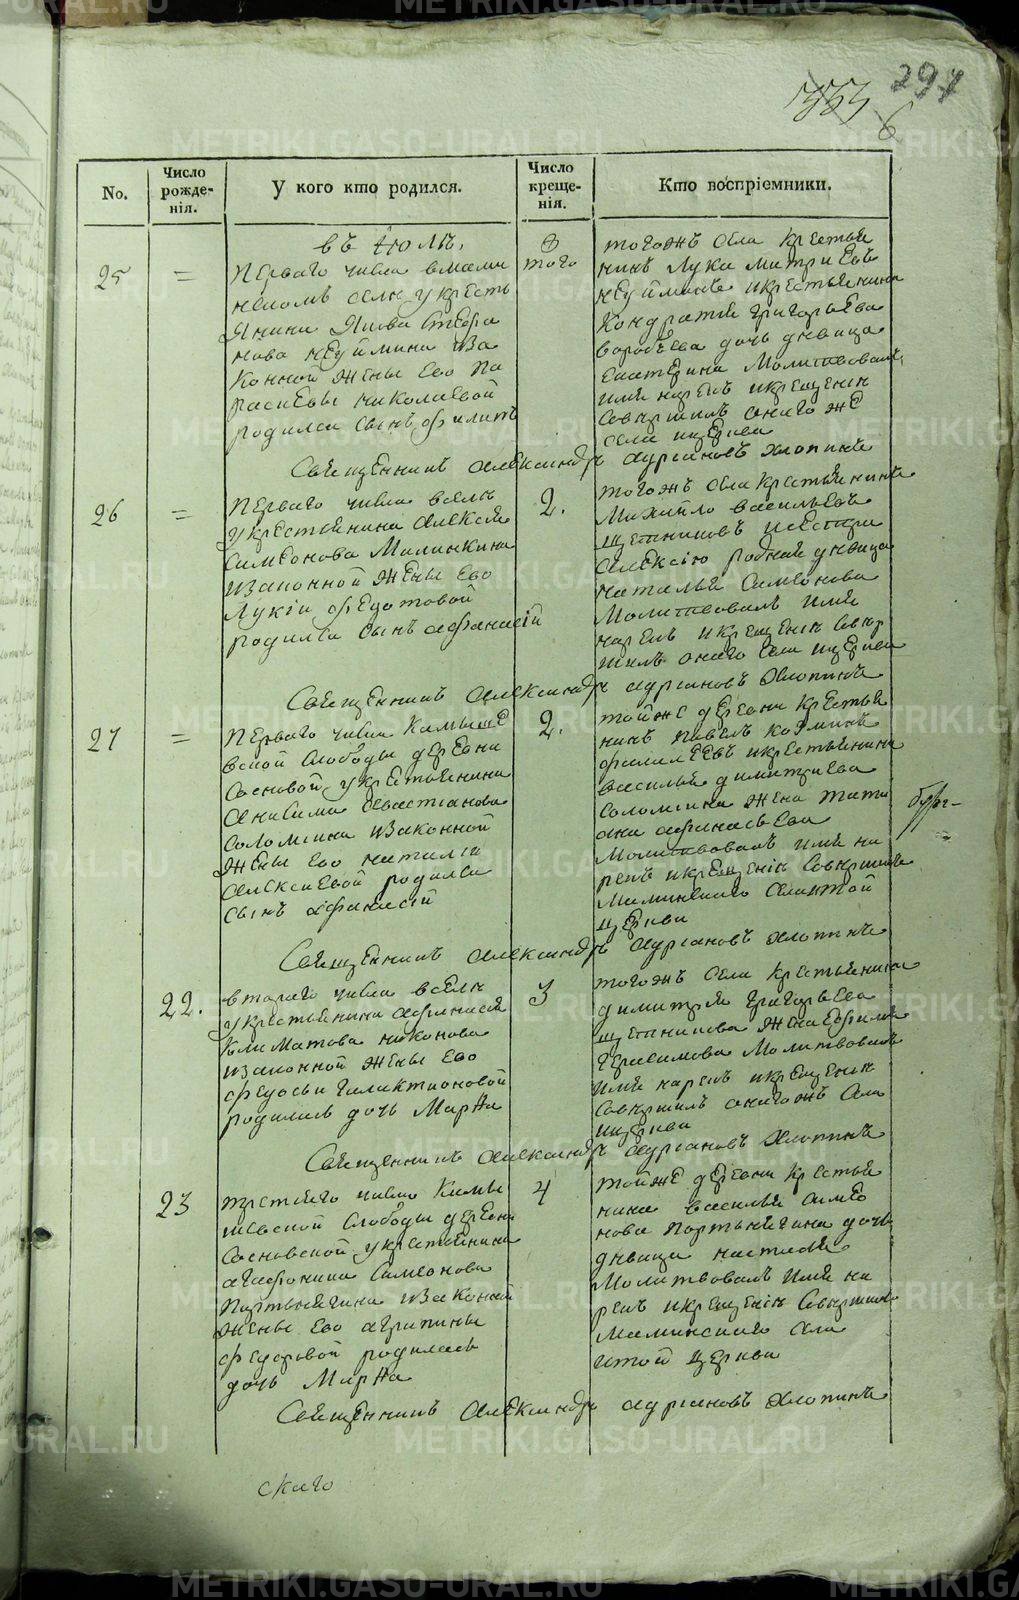 297
353
6
No.
Число рожде-нія.
У кого кто родился.
Число креще-нія.
Кто воспріемники.
въ Іюлѣ,
25
=
Перваго числа вмами
нскомъ селѣ укресть
янина Якова Стефа
нова неуймина иза
конной жены Его Па
расковьи николаевой
родился сынъ филипъ
того
тогожъ села крестья
нинъ Лука митриевъ
неуйминъ икрестьянина
Кондратья григорьева
воробьева дочь дѣвица
Екатерина Молитвовалъ,
имя нарекъ икрещенїе
совершилъ онагоже
села церкви
Священникъ Александръ адриановъ хлопинъ
26
=
Перваго числа вселѣ
укрестьянина Алексея
симеонова Малинкина
изаконной жены Его
Лукіи федотовой
родился сынъ афанасій
2.
тогожъ села крестьянинъ
Михайло васильевъ
щетниковъ исестра
Алексѣю родная дѣвица
наталья симеонова
Молитвовалъ имя
нарекъ икрещенїе совер
шилъ онаго села церкви
Священникъ Александръ адриановъ хлопинъ
27
=
Перваго числа Камыше
вской слободы деревни
сосновой укрестьянина
Анисима севастіанова
соломеина изаконной
жены Его наталіи
алексиевой родился
сынъ афанасій
2.
тойже деревни крестья
нинъ павелъ козминъ
икрестьянина
василья димитриева
соломеина жена татия
на афанасьева
Молитвовалъ имя на
рекъ икрещенїе совершилъ
Маминскаго
церкви
Священникъ Александръ адриановъ хлопинъ
22.
втораго числа вселѣ
укрестьянина Афанасия
никонова
изаконной жены Его
федосьи галактионовой
родилась дочь Марѳа
3
тогожъ села крестьянина
димитрія григорьева
щетникова жена
герасимова Молитвовалъ
имя нарекъ икрещенїе
совершилъ онагожъ села
церкви
Священникъ Александръ адриановъ хлопинъ
23
третьяго числа Камы
шевской слободы деревни
сосновской укрестьянина
агафонина симеонова
изаконной
жены Его агрипины
федоровой родилась
дочь Марѳа
4
тойже деревни крестья
нина василья симео
нова дочь
дѣвица настасья
Молитвовалъ имя на
рекъ икрещенїе совершилъ
Маминскаго села
церкви
Священникъ Александръ адриановъ хлопинъ
скаго
METRIKI.GASO-URAL.RU